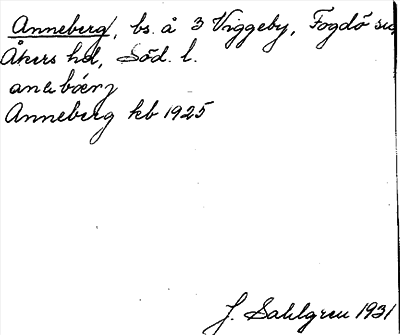 Anneberg, bs. å 3 Viggeby, Fogdö sn,
Åkers hd, Söd. l.
Anneberg kb 1925
J. Sahlgren 1931